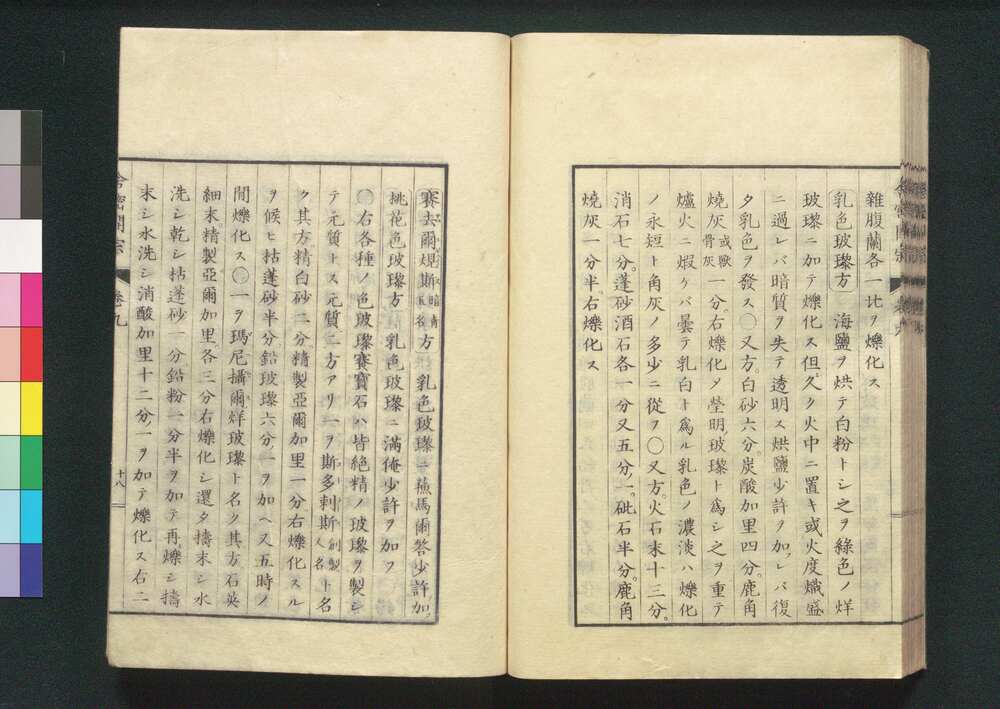 雜腹蘭各一比ヲ爍化ス
乳色玻瓈方 海鹽ヲ烘テ白粉トシ之ヲ綠色ノ烊
玻瓈ニ加テ爍化ス但久ク火中ニ置キ或火度熾盛
ニ過レバ暗質ヲ失テ透明ス烘鹽少許ヲ加レバ復
タ乳色ヲ發ス○又方白砂六分炭酸加里四分鹿角
燒灰或獸骨灰一分右爍化メ瑩明玻瓈ト爲シ之ヲ重テ
爐火ニ煆ケバ曇テ乳白ト爲ル乳色ノ濃淡ハ爍化
ノ永短ト角灰ノ多少ニ從フ○又方火石末十三分
消石七分蓬砂酒石各一分又五分ノ一砒石半分鹿角
燒灰一分半右爍化ス
賽去爾焜斯方 乳色玻瓈ニ蕪馬爾答少許加
桃花色玻瓈方 乳色玻瓈ニ滿俺少許ヲ加フ
○右各種ノ色玻瓈賽寶石ハ皆絶精ノ玻瓈ヲ製シ
テ元質トス元質二方アリ一ヲ斯多剌斯創製人名ト名
ク其方精白砂二分精製亞爾加里一分右爍化スル
ヲ候ヒ枯蓬砂半分鉛玻瓈六分一ヲ加ヘ又五時ノ
間爍化ス○一ヲ瑪尼攝爾烊玻瓈ト名ク其方石英
細末精製亞爾加里各三分右爍化シ還タ擣末シ水
洗シ乾シ枯蓬砂一分鉛粉一分半ヲ加テ再爍シ擣
末シ水洗シ消酸加里十二分ノ一ヲ加テ爍化ス右二
十八